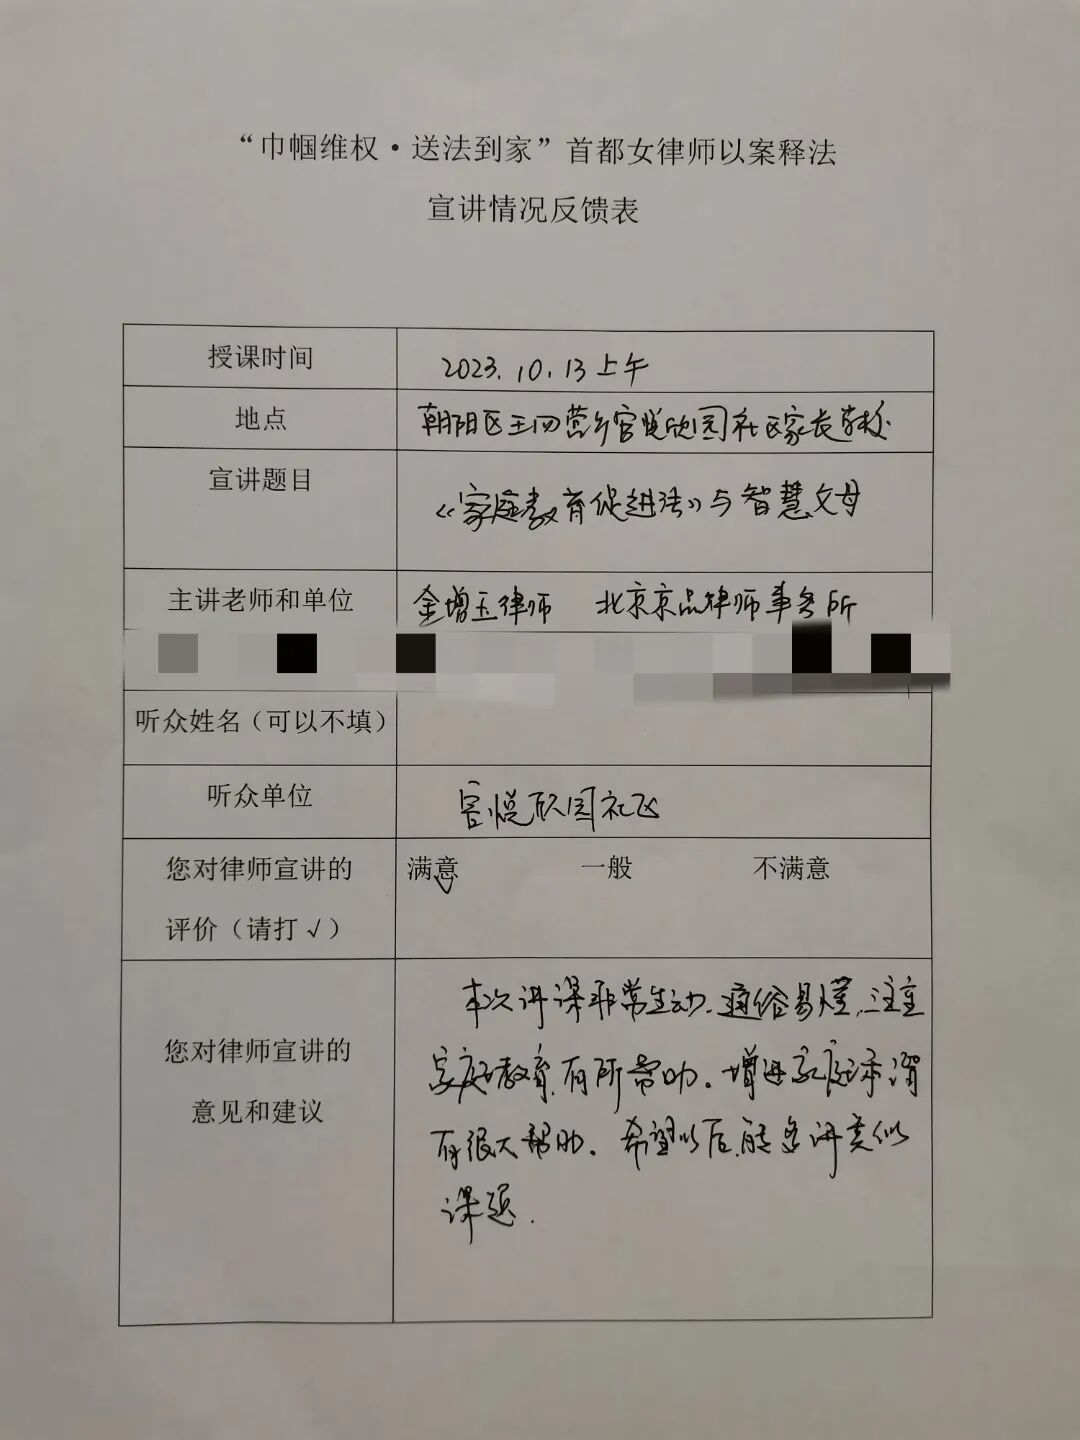 “巾帼维权·送法到家”首都女律师以案释法
宣讲情况反馈表
授课时间 2023.10.13上午
地点 朝阳区王四营乡官悦欣园社区家长学校
宣讲题目 《家庭教育促进法》与智慧父母
主讲老师和单位 金增玉律师 北京京品律师事务所
听众姓名（可以不填）
听众单位 官悦欣园社区
您对律师宣讲的 满意 一般 不满意
√
评价（请打√）
本次讲课非常生动.通俗易懂,注重
您对律师宣讲的
家庭教育,有所帮助。增进家庭和谐
意见和建议
有很大帮助。希望以后能多讲类似
课题.